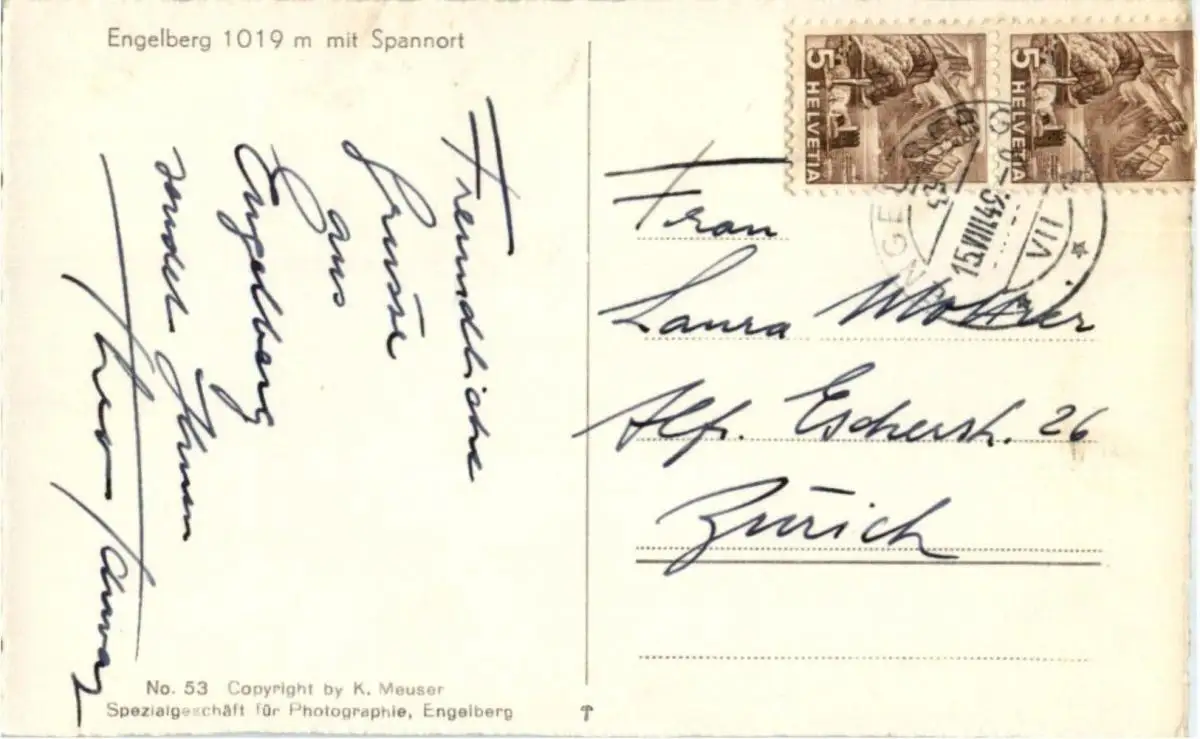 Engelberg 1019 m mit Spannort
Freundliche
Grüsse
aus
Engelberg
sendet Ihnen
Theo Schwarz
No. 53 Copyright by K. Meuser
Spezialgeschäft für Photographie, Engelberg
5 HELVETIA
5 HELVETIA
15.VIII.49.
VII
Frau
Laura
Alf. Escherstr. 26
Zürich